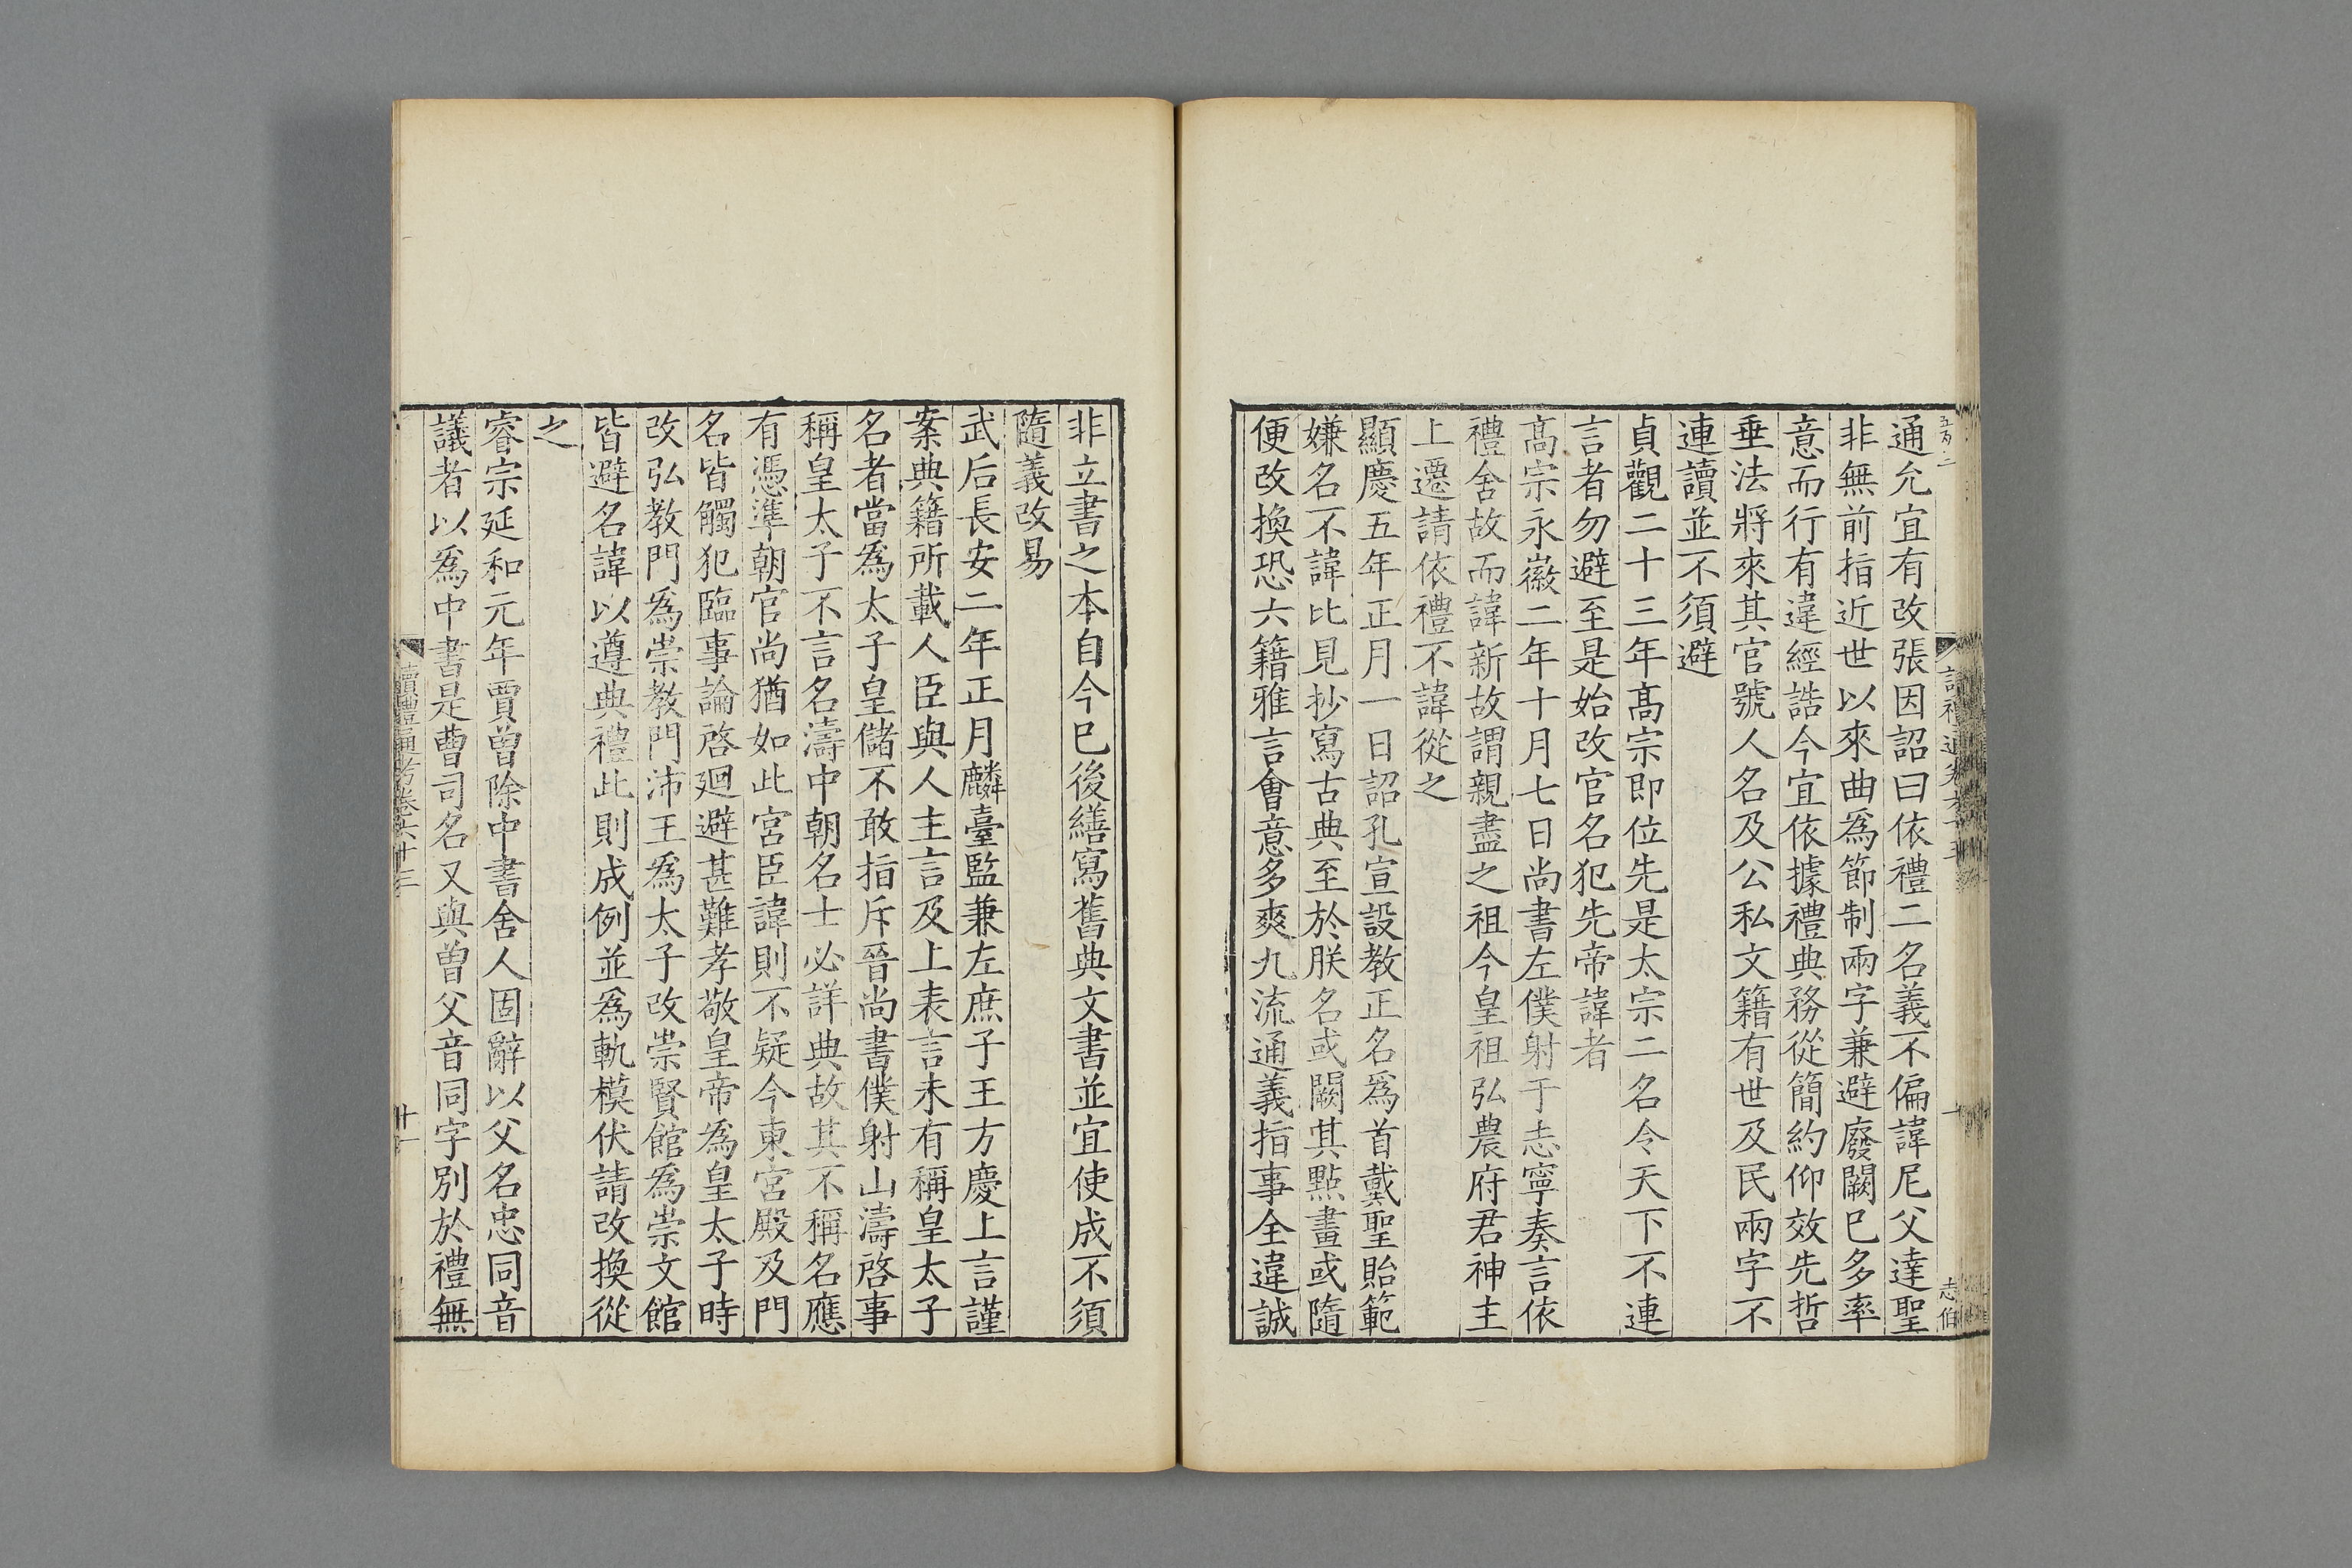 通允宜有改張因詔曰依禮二名義不偏諱尼父達聖
非無前指近世以來曲爲節制兩字兼避廢闕已多率
意而行有違經誥今宜依據禮典務從簡約仰效先哲
垂法將來其官號人名及公私文籍有世及民兩字不
連讀並不須避
貞觀二十三年髙宗即位先是太宗二名令天下不連
言者勿避至是始改官名犯先帝諱者
髙宗永徽二年十月七日尚書左僕射于志寧奏言依
禮舍故而諱新故謂親盡之祖今皇祖弘農府君神主
上遷請依禮不諱從之
顯慶五年正月一日詔孔宣設教正名爲首戴聖貽範
嫌名不諱比見抄寫古典至於朕名或闕其點畫或隨
便改換恐六籍雅言會意多爽九流通義指事全違誠
非立書之本自今已後繕寫舊典文書並宜使成不須
隨義改易
武后長安二年正月麟臺監兼左庶子王方慶上言謹
案典籍所載人臣與人主言及上表言未有稱皇太子
名者當為太子皇儲不敢指斥晉尚書僕射山濤啓事
稱皇太子不言名濤中朝名士必詳典故其不稱名應
有憑準朝官尚猶如此宮臣諱則不疑今東宮殿及門
名皆觸犯臨事論啓迴避甚難孝敬皇帝為皇太子時
改弘教門爲崇教門沛王爲太子改崇賢館爲崇文館
皆避名諱以遵典禮此則成例並爲軌模伏請改換從
之
睿宗延和元年賈曾除中書舍人固辭以父名忠同音
議者以爲中書是曹司名又與曾父音同字別於禮無
讀禮通考卷六十三
廿一
志伯